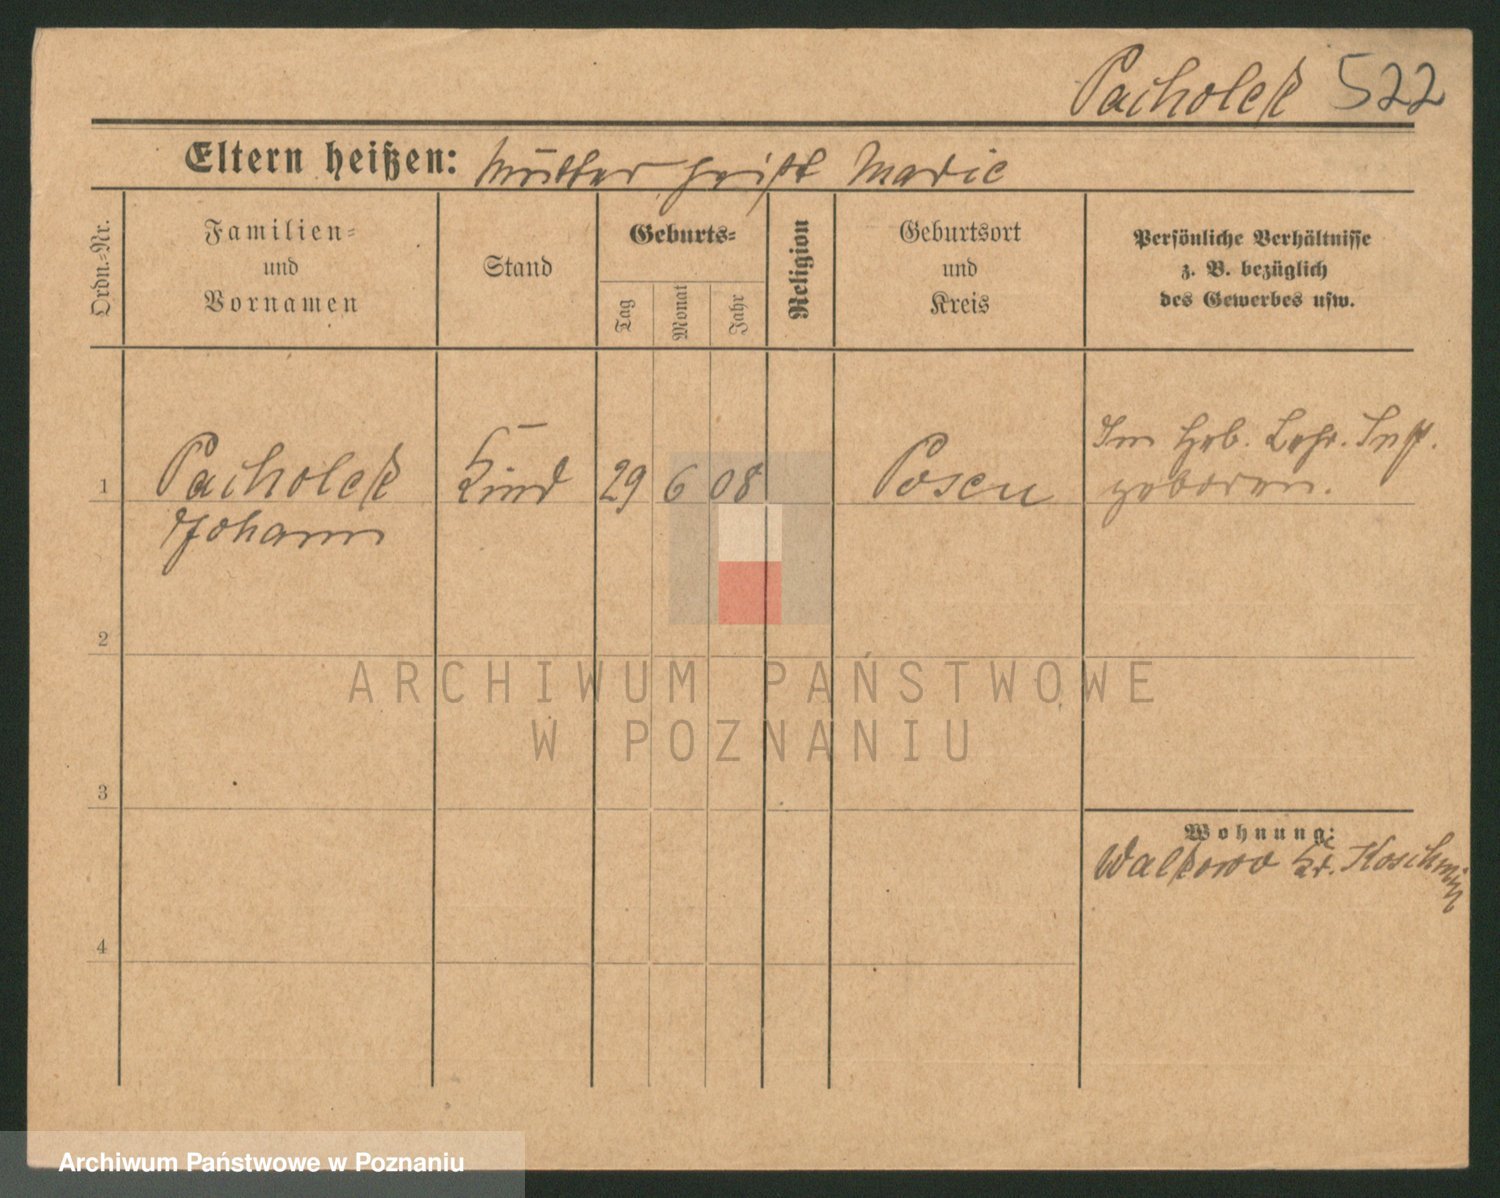 Pacholek 522
Eltern heißen: Mutter heißt Marie
Ordn.-Nr.
Familien-
und
Vornamen
Stand
Geburts-
Tag
Monat
Jahr
Religion
Geburtsort
und
Kreis
Persönliche Verhältnisse
z. B. bezüglich
des Gewerbes usw.
1 Pacholek Kind 29 6 08 Posen Im Heb. Lehr. Inst.
Johann geboren.
2
ARCHIWUM PAŃSTWOWE
W POZNANIU
3
Wohnung:
Walkowo Kr. Koschmin
4
Archiwum Państwowe w Poznaniu